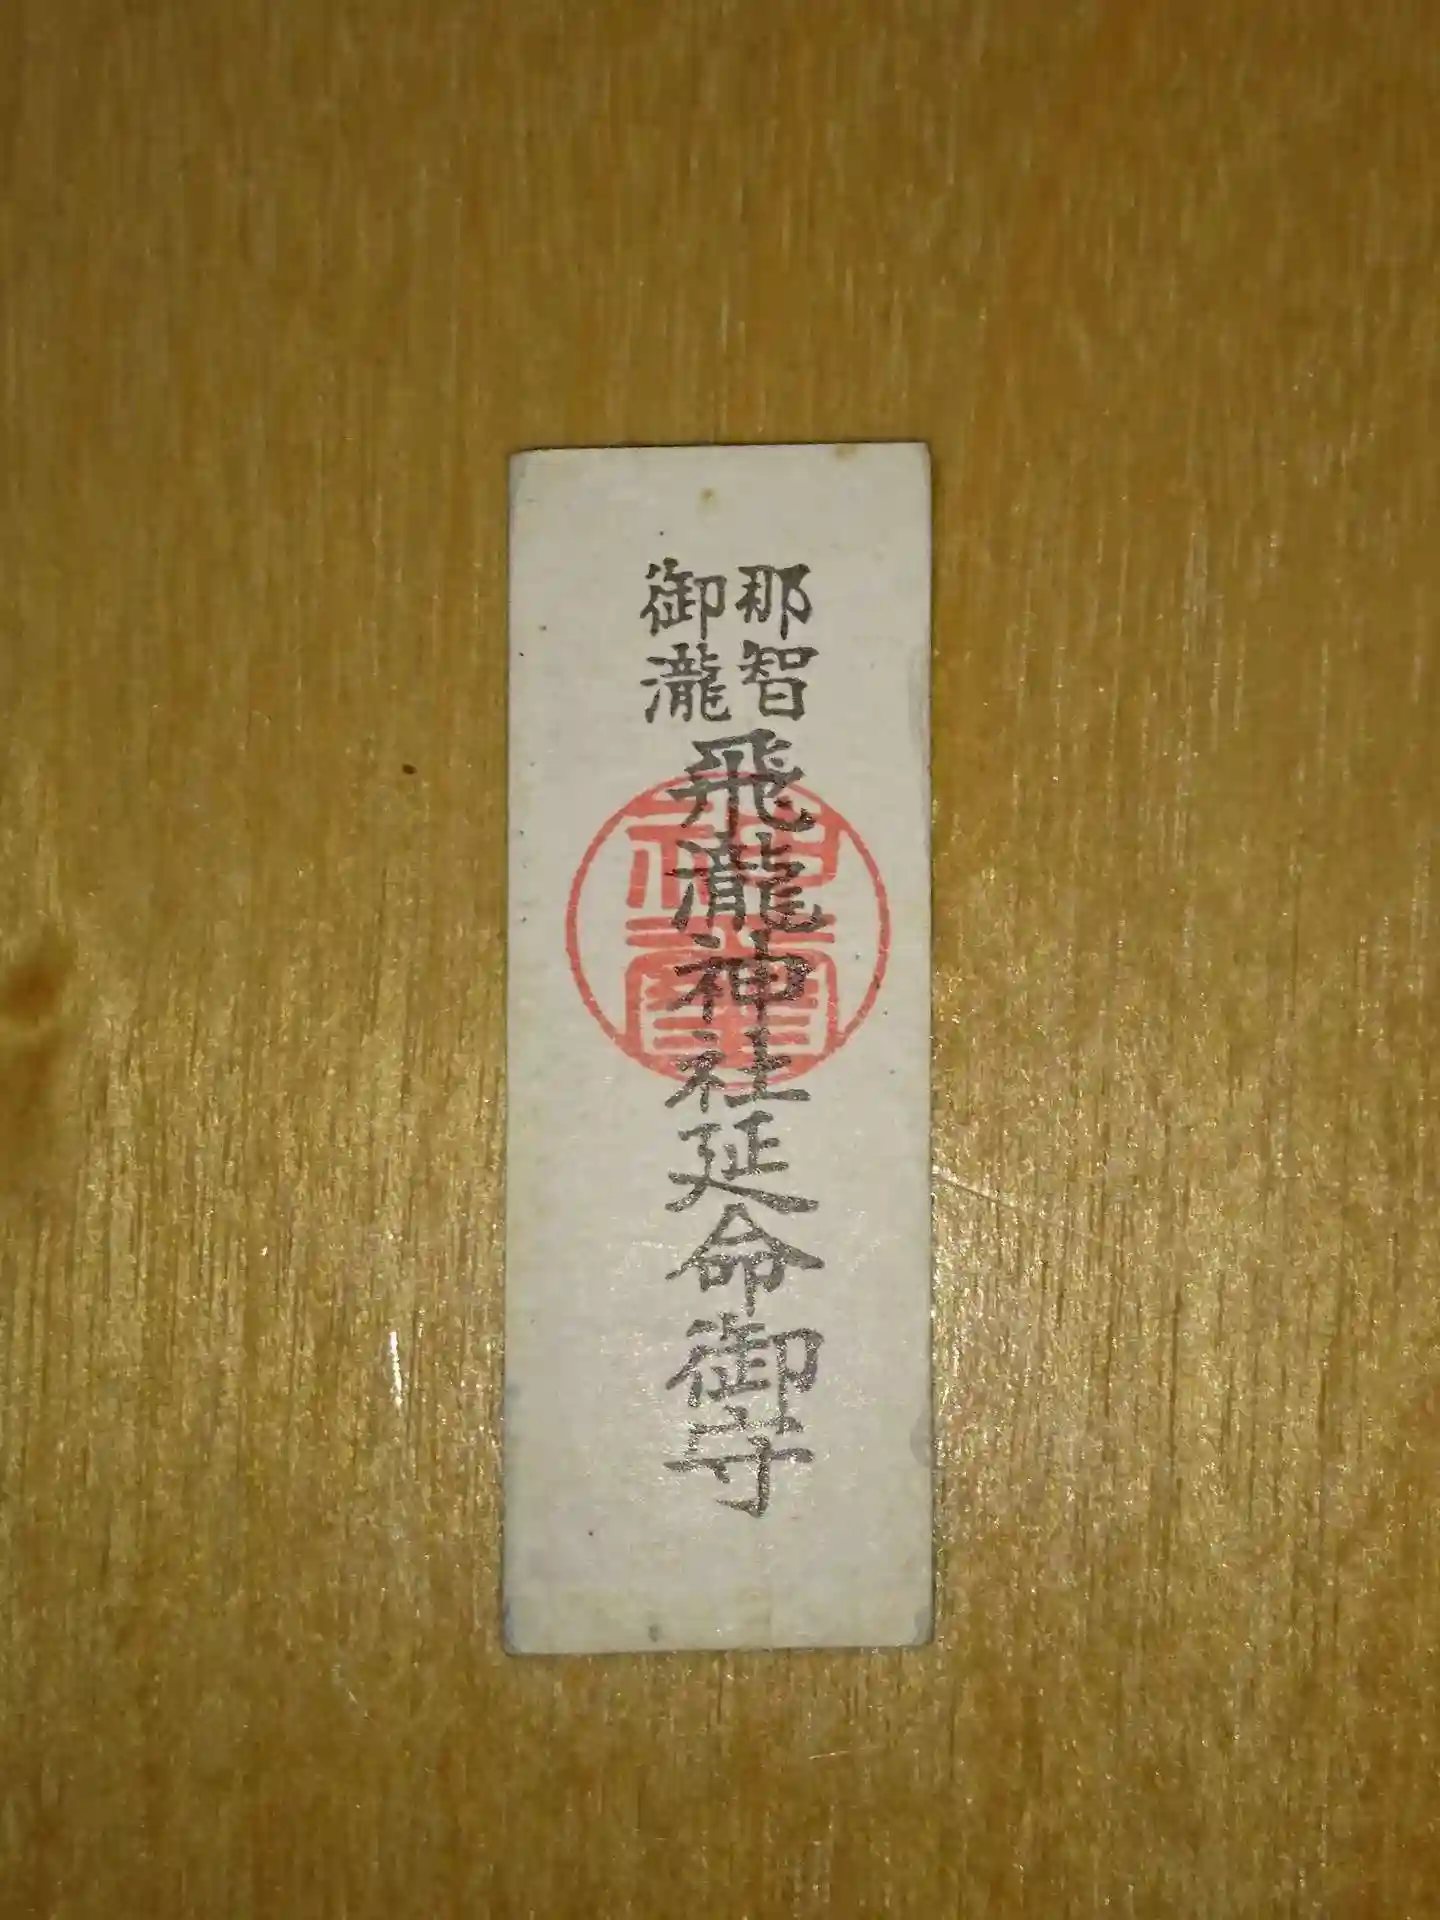 那智
御瀧
飛瀧神社延命御守
神璽